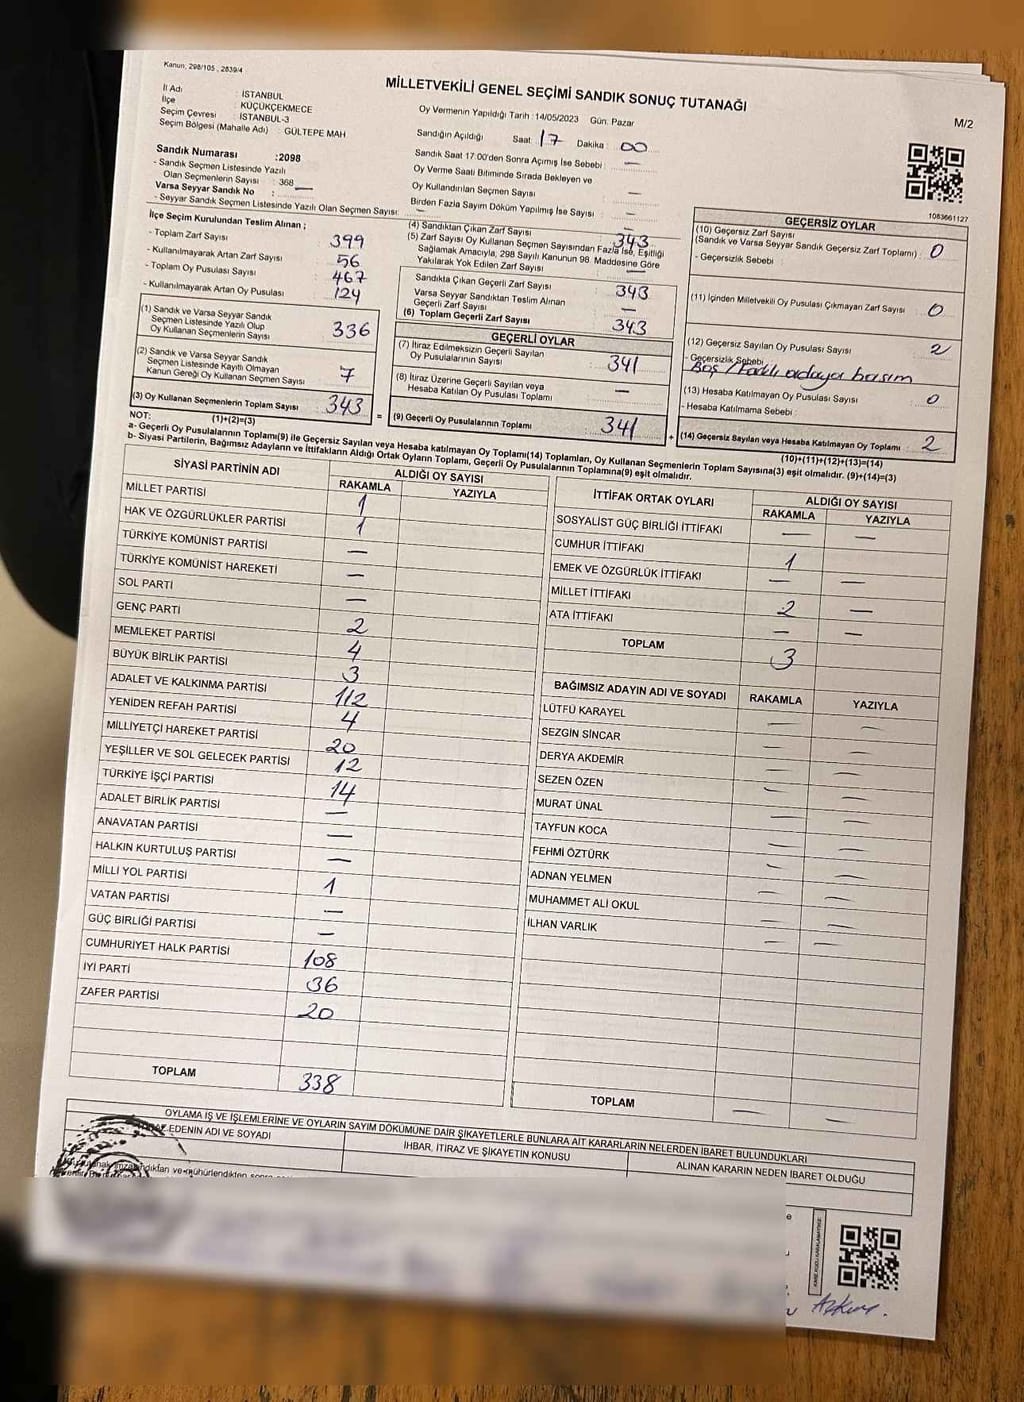 Kanun, 298/105 , 2839/4
MİLLETVEKİLİ GENEL SEÇİMİ SANDIK SONUÇ TUTANAĞI
M/2
İl Adı : İSTANBUL
İlçe : KÜÇÜKÇEKMECE
Seçim Çevresi : İSTANBUL-3
Seçim Bölgesi (Mahalle Adı) : GÜLTEPE MAH
Oy Vermenin Yapıldığı Tarih :14/05/2023 Gün: Pazar
Sandığın Açıldığı Saat : 17 Dakika : 00
Sandık Saat 17:00'den Sonra Açımış İse Sebebi : —
Oy Verme Saati Bitiminde Sırada Bekleyen ve
Oy Kullandırılan Seçmen Sayısı : —
Birden Fazla Sayım Döküm Yapılmış İse Sayısı : —
Sandık Numarası :2098
- Sandık Seçmen Listesinde Yazılı
Olan Seçmenlerin Sayısı : 368
Varsa Seyyar Sandık No : —
- Seyyar Sandık Seçmen Listesinde Yazılı Olan Seçmen Sayısı: —
1083661127
İlçe Seçim Kurulundan Teslim Alınan ;
- Toplam Zarf Sayısı : 399
- Kullanılmayarak Artan Zarf Sayısı : 56
- Toplam Oy Pusulası Sayısı : 467
- Kullanılmayarak Artan Oy Pusulası : 124
(1) Sandık ve Varsa Seyyar Sandık
Seçmen Listesinde Yazılı Olup
Oy Kullanan Seçmenlerin Sayısı : 336
(2) Sandık ve Varsa Seyyar Sandık
Seçmen Listesinde Kayıtlı Olmayan
Kanun Gereği Oy Kullanan Seçmen Sayısı : 7
(3) Oy Kullanan Seçmenlerin Toplam Sayısı : 343
(1)+(2)=(3)
(4) Sandıktan Çıkan Zarf Sayısı : 343
(5) Zarf Sayısı Oy Kullanan Seçmen Sayısından Fazla İse, Eşitliği
Sağlamak Amacıyla, 298 Sayılı Kanunun 98. Maddesine Göre
Yakılarak Yok Edilen Zarf Sayısı : —
Sandıkta Çıkan Geçerli Zarf Sayısı : 343
Varsa Seyyar Sandıktan Teslim Alınan
Geçerli Zarf Sayısı : —
(6) Toplam Geçerli Zarf Sayısı : 343
GEÇERLİ OYLAR
(7) İtiraz Edilmeksizin Geçerli Sayılan
Oy Pusulalarının Sayısı : 341
(8) İtiraz Üzerine Geçerli Sayılan veya
Hesaba Katılan Oy Pusulası Toplamı : —
= (9) Geçerli Oy Pusulalarının Toplamı : 341
GEÇERSİZ OYLAR
(10) Geçersiz Zarf Sayısı
(Sandık ve Varsa Seyyar Sandık Geçersiz Zarf Toplamı) : 0
- Geçersizlik Sebebi :
(11) İçinden Milletvekili Oy Pusulası Çıkmayan Zarf Sayısı : 0
(12) Geçersiz Sayılan Oy Pusulası Sayısı : 2
- Geçersizlik Sebebi
Boş / Farklı adaya basım
(13) Hesaba Katılmayan Oy Pusulası Sayısı : 0
- Hesaba Katılmama Sebebi :
+ (14) Geçersiz Sayılan veya Hesaba Katılmayan Oy Toplamı : 2
(10)+(11)+(12)+(13)=(14)
NOT:
a- Geçerli Oy Pusulalarının Toplamı(9) ile Geçersiz Sayılan veya Hesaba katılmayan Oy Toplamı(14) Toplamları, Oy Kullanan Seçmenlerin Toplam Sayısına(3) eşit olmalıdır. (9)+(14)=(3)
b- Siyasi Partilerin, Bağımsız Adayların ve İttifakların Aldığı Ortak Oyların Toplamı, Geçerli Oy Pusulalarının Toplamına(9) eşit olmalıdır.
SİYASİ PARTİNİN ADI ALDIĞI OY SAYISI
RAKAMLA YAZIYLA
MİLLET PARTİSİ 1
HAK VE ÖZGÜRLÜKLER PARTİSİ 1
TÜRKİYE KOMÜNİST PARTİSİ —
TÜRKİYE KOMÜNİST HAREKETİ —
SOL PARTİ —
GENÇ PARTİ 2
MEMLEKET PARTİSİ 4
BÜYÜK BİRLİK PARTİSİ 3
ADALET VE KALKINMA PARTİSİ 112
YENİDEN REFAH PARTİSİ 4
MİLLİYETÇİ HAREKET PARTİSİ 20
YEŞİLLER VE SOL GELECEK PARTİSİ 12
TÜRKİYE İŞÇİ PARTİSİ 14
ADALET BİRLİK PARTİSİ —
ANAVATAN PARTİSİ —
HALKIN KURTULUŞ PARTİSİ —
MİLLİ YOL PARTİSİ 1
VATAN PARTİSİ —
GÜÇ BİRLİĞİ PARTİSİ —
CUMHURİYET HALK PARTİSİ 108
İYİ PARTİ 36
ZAFER PARTİSİ 20
TOPLAM 338
İTTİFAK ORTAK OYLARI ALDIĞI OY SAYISI
RAKAMLA YAZIYLA
SOSYALİST GÜÇ BİRLİĞİ İTTİFAKI — —
CUMHUR İTTİFAKI 1
EMEK VE ÖZGÜRLÜK İTTİFAKI — —
MİLLET İTTİFAKI 2 —
ATA İTTİFAKI — —
TOPLAM 3
BAĞIMSIZ ADAYIN ADI VE SOYADI RAKAMLA YAZIYLA
LÜTFÜ KARAYEL — —
SEZGİN SİNCAR — —
DERYA AKDEMİR — —
SEZEN ÖZEN — —
MURAT ÜNAL — —
TAYFUN KOCA — —
FEHMİ ÖZTÜRK — —
ADNAN YELMEN — —
MUHAMMET ALİ OKUL — —
İLHAN VARLIK — —
TOPLAM — —
OYLAMA İŞ VE İŞLEMLERİNE VE OYLARIN SAYIM DÖKÜMÜNE DAİR ŞİKAYETLERLE BUNLARA AİT KARARLARIN NELERDEN İBARET BULUNDUKLARI
EDENİN ADI VE SOYADI
İHBAR, İTİRAZ VE ŞİKAYETİN KONUSU
ALINAN KARARIN NEDEN İBARET OLDUĞU